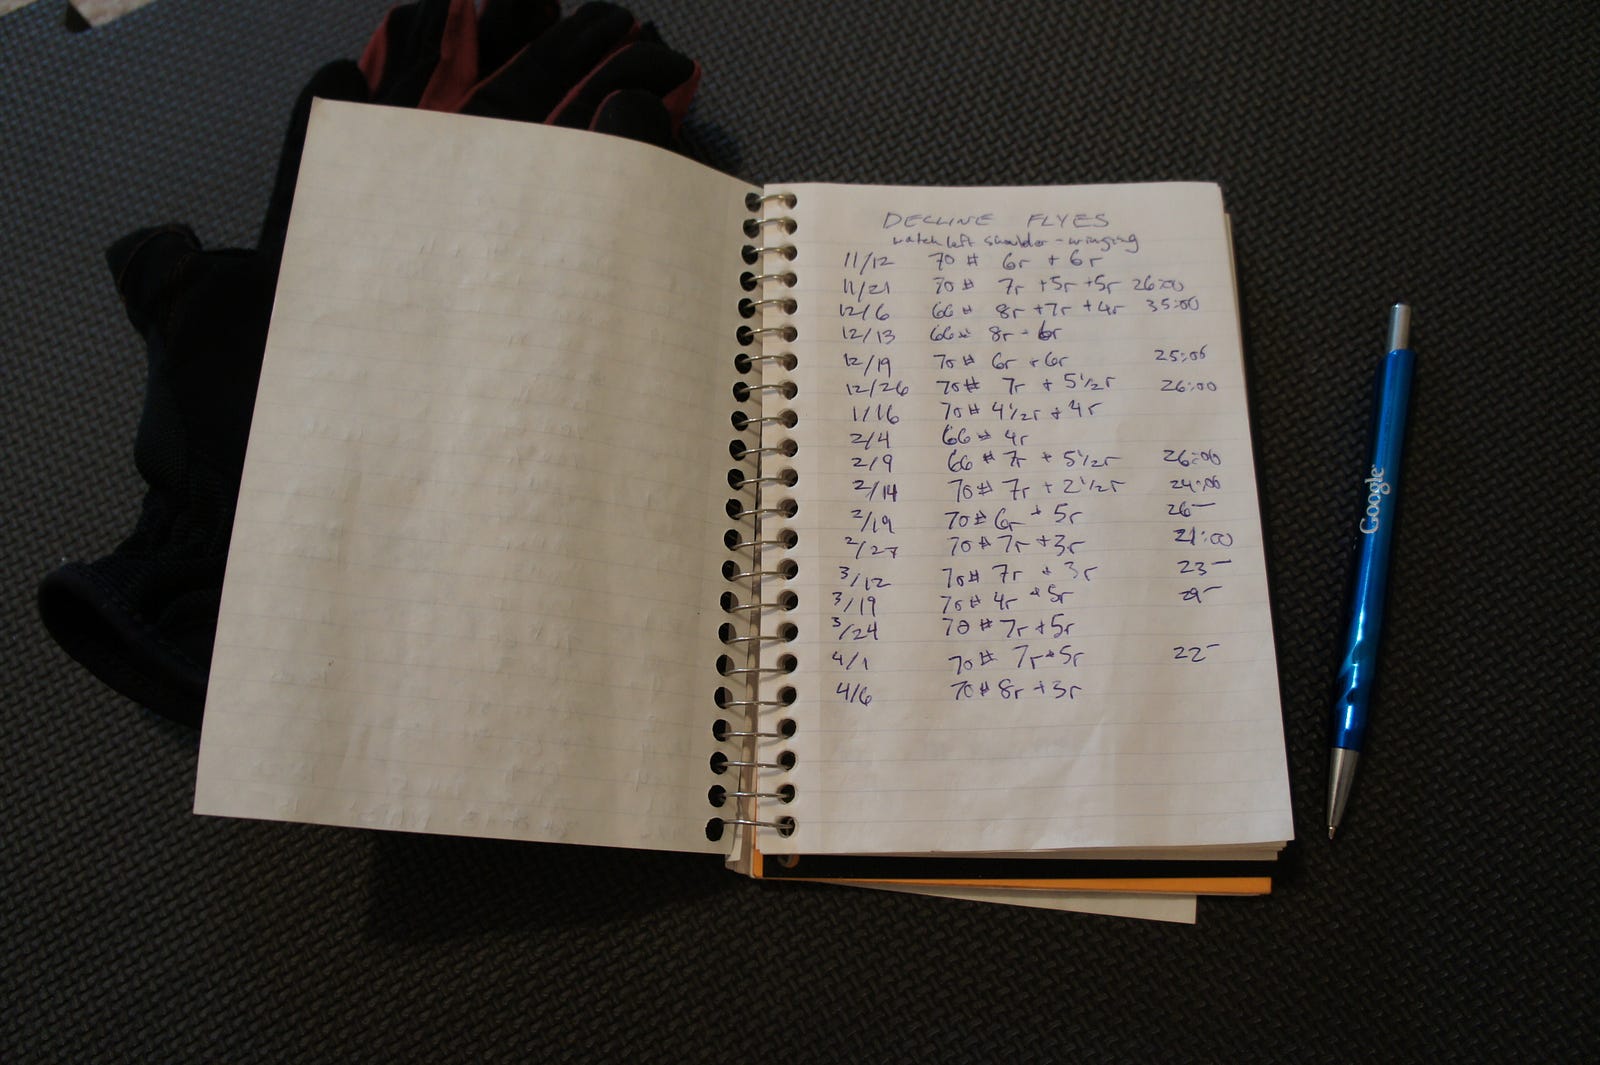 DECLINE FLYES
watch left shoulder - winging
11/12 70 # 6r + 6r
11/21 70 # 7r + 5r + 5r 26:00
12/6 66 # 8r + 7r + 4r 35:00
12/13 66 # 8r - 6r
12/19 70 # 6r + 6r 25:00
12/26 70 # 7r + 5 1/2 r 26:00
1/16 70 # 4 1/2 r + 4r
2/4 66 # 4r
2/9 66 # 7r + 5 1/2 r 26:00
2/14 70 # 7r + 2 1/2 r 24:00
2/19 70 # 6r + 5r 26-
2/27 70 # 7r + 3r 21:00
3/12 70 # 7r + 3r 23-
3/19 70 # 4r + 5r
3/24 70 # 7r + 5r
4/1 70 # 7r + 5r 22-
4/6 70 # 8r + 3r
Google